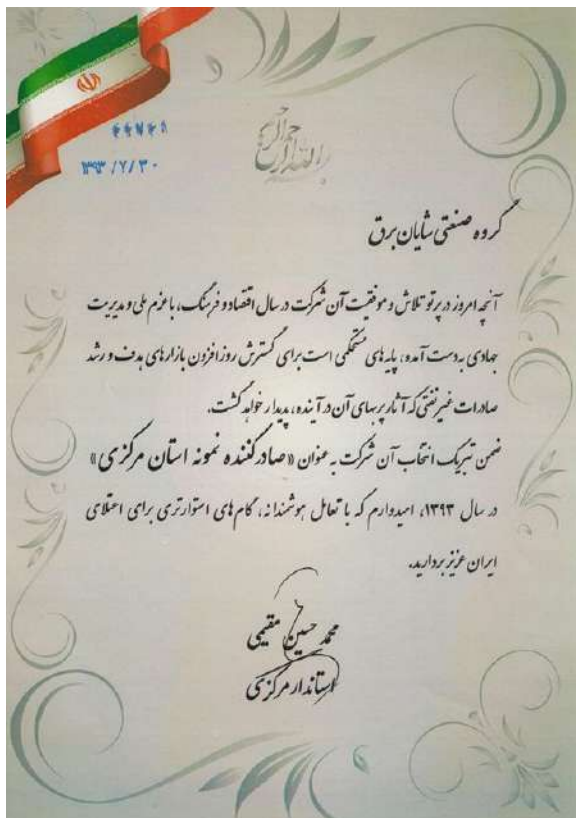 بسم الله الرحمن الرحیم
۱۳۹۳/۷/۳۰
گروه صنعتی شایان برق
آنچه امروز در پرتو تلاش و موفقیت آن شرکت در سال اقتصاد و فرهنگ، با عزم ملی و مدیریت
جهادی به دست آمده، پایه های مستحکمی است برای گسترش روزافزون بازارهای هدف و رشد
صادرات غیرنفتی که آثار پربهای آن در آینده، پدیدار خواهد گشت.
ضمن تبریک انتخاب آن شرکت به عنوان «صادرکننده نمونه استان مرکزی»
در سال ۱۳۹۳، امیدوارم که با تعامل هوشمندانه، گام های استوارتری برای اعتلای
ایران عزیز بردارید.
محمد حسین مقیمی
استاندار مرکزی